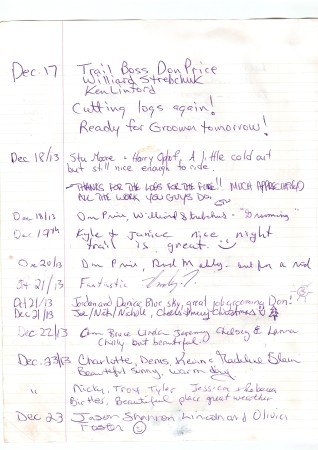 Dec. 17 Trail Boss Don Price
Williard Strebchuk
Ken Linford
Cutting logs again!
Ready for Groomer tomorrow!
Dec 18/13 Stu Moore + Harry A little cold out
but still nice enough to ride.
- THANKS FOR THE LOGS FOR THE FIRE!! MUCH APPRECIATED
ALL THE WORK YOU GUYS DO.
Dec 18/13 Don Price, Williard Strebchuk -
Dec 19th Kyle & Janice nice night
trail is great.
Dec 20/13 Don Price, - out for a rid
21/13 Fantastic
21/13 Jordan and Danica Blue sky, great job grooming Don!
Dec 21/13 Joe/Nich/Nichole, Cheers Merry Christmas
Dec 22/13 Bruce Linda Jeremy Chelsey & Lanna
Chilly but beautiful.
Dec. 23/13 Charlotte, Denis, Kevin & Madeline
Beautiful Sunny, warm day
" Nicky, Troy, Tyler Jessica + Rebecca
Birtles, Beautiful place great weather
Dec 23 Jason Shannon Lincoln and Olivia